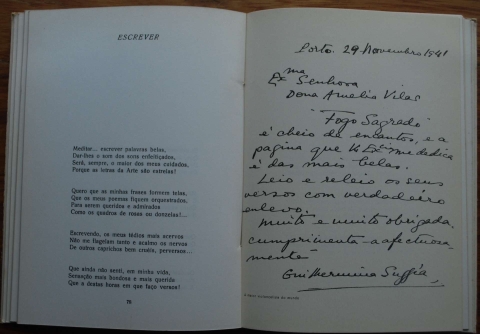 ESCREVER
Meditar... escrever palavras belas,
Dar-lhes o som dos sons enfeitiçados,
Será, sempre, o maior dos meus cuidados,
Porque as letras da Arte são estrelas!
Quero que as minhas frases formem telas,
Que os meus poemas fiquem orquestrados,
Para serem queridos e admirados
Como os quadros de rosas ou donzelas!...
Escrevendo, os meus tédios mais acervos
Não me flagelam tanto e acalmo os nervos
De outros caprichos bem cruéis, perversos...
Que ainda não senti, em minha vida,
Sensação mais bondosa e mais querida
Que a destas horas em que faço versos!
Porto. 29 Novembro 1941
Exma Senhora
Dona Amelia Vilar
"Fogo Sagrado"
é cheio de encantos, e a
pagina que V. Exª me dedica
é das mais belas.
Leio e releio os seus
versos com verdadeiro
enlevo.
Muito e muito obrigada.
Cumprimenta-a afectuosa-
mente
Guilhermina Suggia,